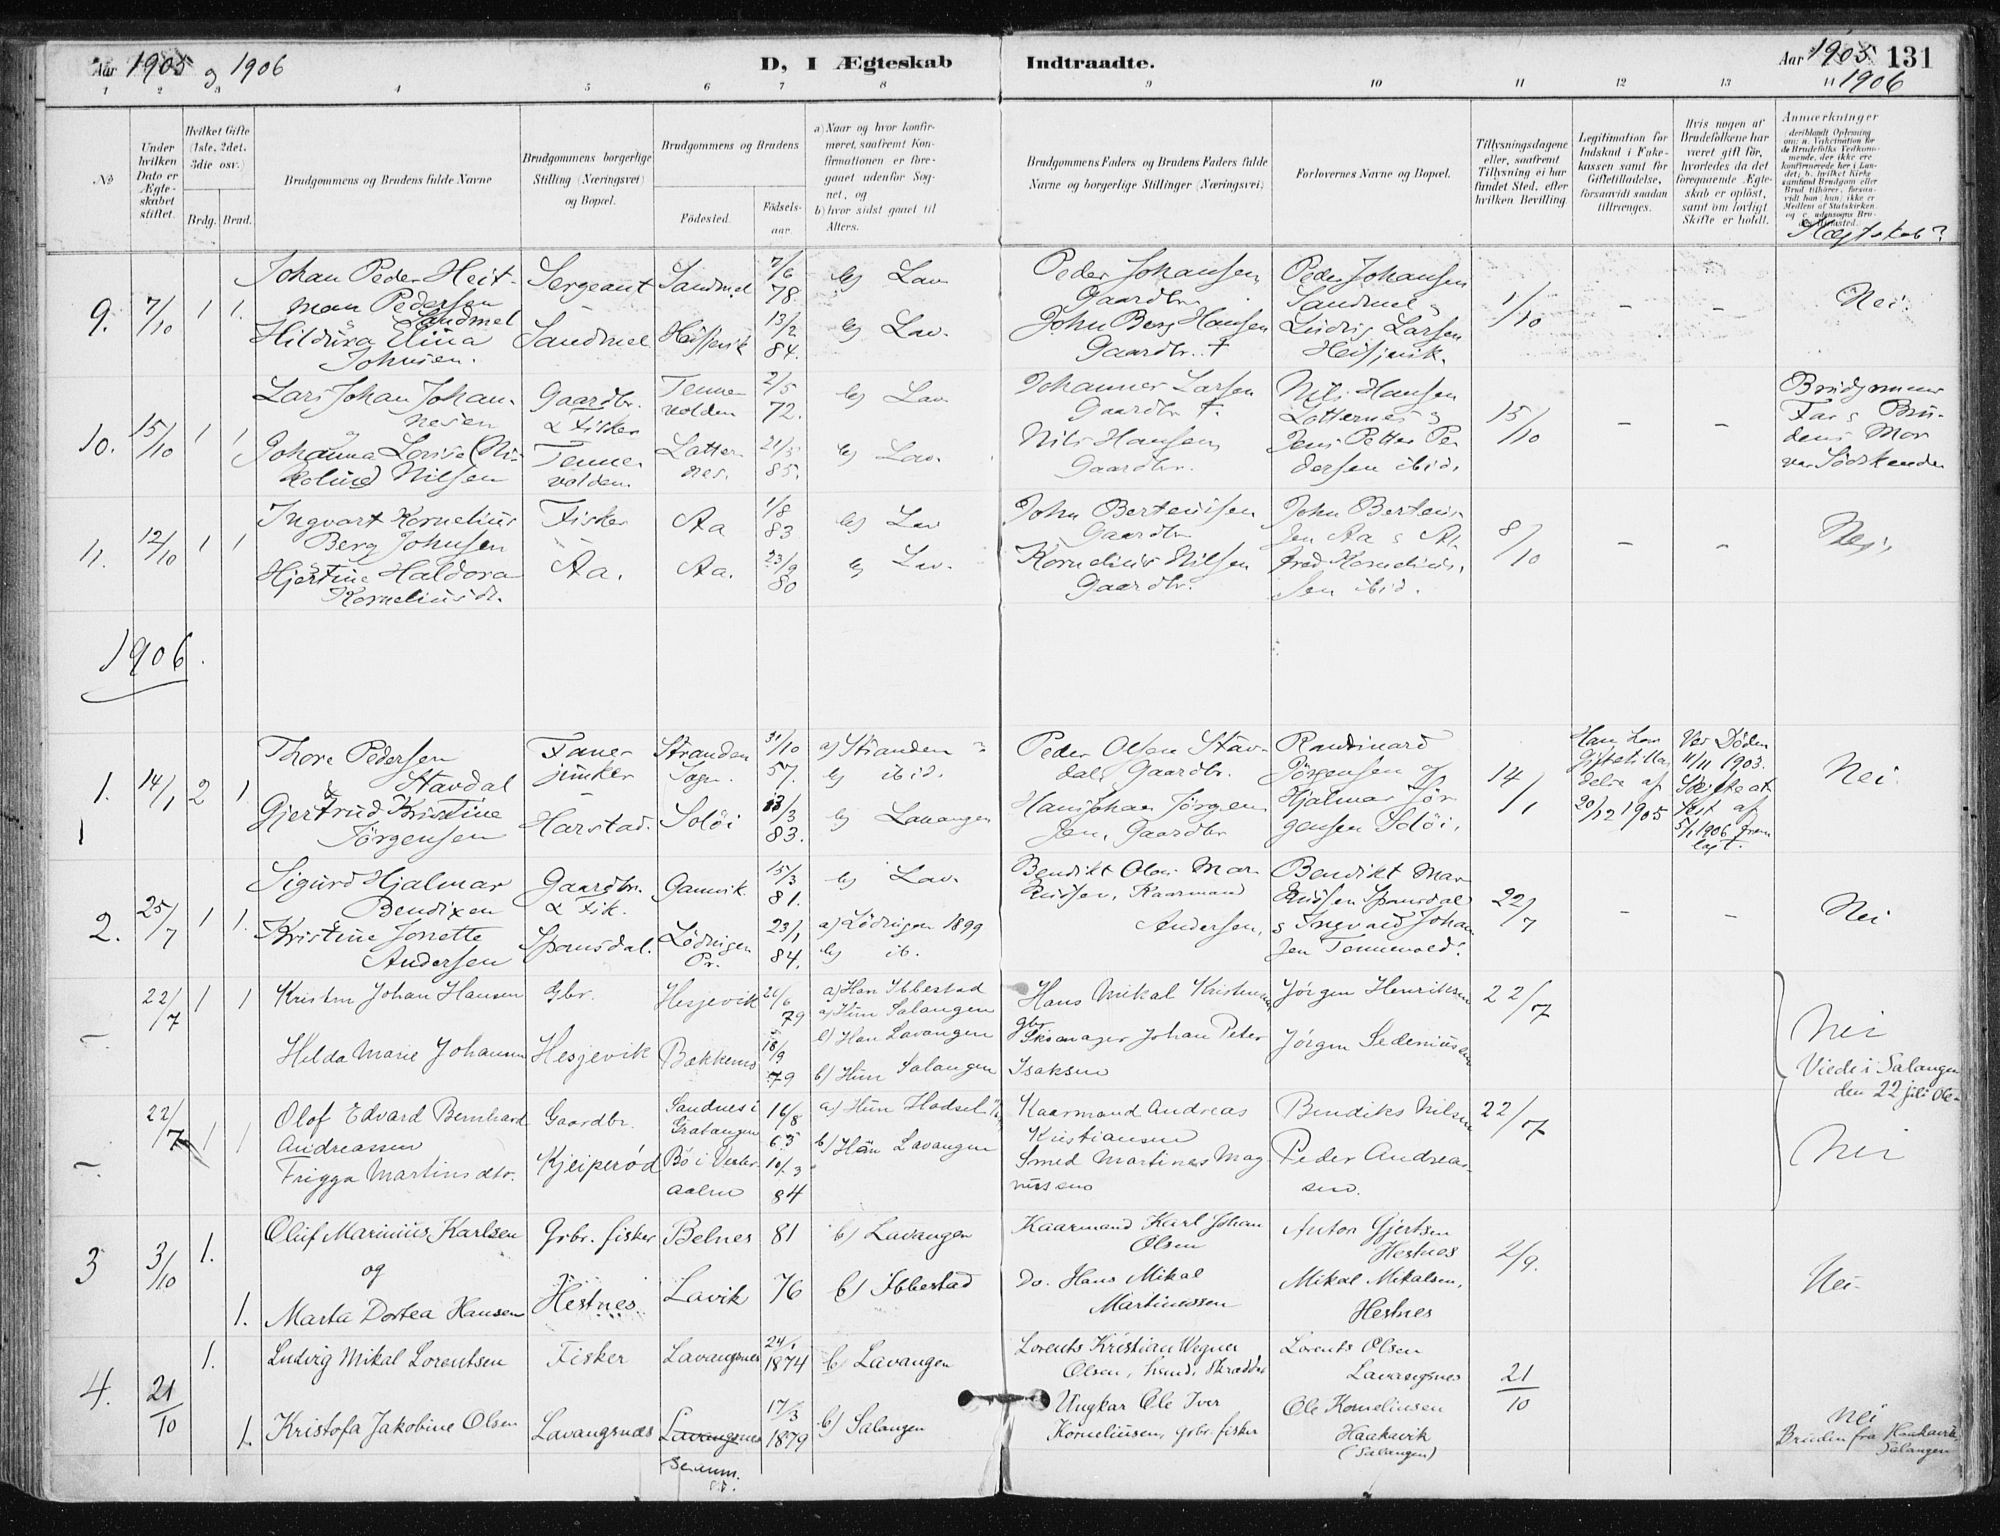 Aar 1905 og 1906
D, I Ægteskab Indtraadte.
Aar 1905 131
1906
1 2 3 4 5 6 7 8 9 10 11 12 13 14
№
Under hvilken Dato er Ægteskabet stiftet.
Hvilket Gifte (1ste, 2det, 3die osv.)
Brdg. Brud.
Brudgommens og Brudens fulde Navne
Brudgommens borgerlige Stilling (Næringsvei) og Bopæl.
Brudgommens og Brudens
Fødested. Fødsels-aar.
a) Naar og hvor konfirmeret, saafremt Konfirmationen er foregaaet udenfor Sognet, og
b) hvor sidst gaaet til Alters.
Brudgommens Faders og Brudens Faders fulde Navne og borgerlige Stillinger (Næringsvei)
Forlovernes Navne og Bopæl.
Tillysningsdagene eller, saafremt Tillysning ei har fundet Sted, efter hvilken Bevilling.
Legitimation for Indskud i Enkekassen samt for Giftetilladelse, forsaavidt saadan tiltrænges.
Hvis nogen af Brudefolkene har været gift før, hvorledes da det foregaaende Ægteskab er opløst, samt om lovligt Skifte er holdt.
Anmærkninger
9. 7/10 1 1.
Johan Peder Heit-
man Pedersen
Sandmel
Hildura Elina
Johnsen.
Sergeant
Sandmel
Sandmel 7/6 78.
13/2 84.
b) Lav.
b) Lav.
Peder Johansen
Gaardbr.
John Berg Hansen
Gaardbr. †
Peder Johansen
Sandmel &
Ludvig Larsen
1/10 – – Nei.
10. 15/10 1 1
Lars Johan Johan-
nesen
&
Johanna Lovise Ni-
Nilsen
Gaardbr.
& Fisker
Tenne-
volden.
Tenne-
volden 2/5 72.
Latter-
nes. 21/5 85.
b) Lav.
b) Lav.
Johannes Larsen
Gaardbr. †.
Nils Hansen
Gaardbr.
Nils Hansen
Latternes &
Jens Petter Pe-
dersen ibid.
15/10 – –
Brudgommens
Far & Bru-
dens Mor
var Södskende
11. 12/10 1 1
Ingvart Kornelius
Berg Johnsen
&
Hjertine Haldora
Korneliusdt.
Fisker
Aa.
Aa 1/8 83
Aa. 23/9 80
b) Lav
b) Lav.
John Berteusen
Gaardbr
Kornelius Nilsen
Gaardbr.
John Berteus-
sen Aa & Al-
fred Kornelius-
sen ibid.
8/10 – – Nei,
1906.
1. 14/1 2 1
Thore Pedersen
Stavdal
&
Gjertrud Kristine
Jørgensen
Faner
junker
Harstad.
Stranden
Sogn. 31/10 57.
Soløi 13/3 83.
a) Stranden
b) ibid.
b) Lavangen
Peder Olsen Stav-
dal, Gaardbr.
Hans Johan Jørgen-
sen, Gaardbr
Jørgensen og
Hjalmar Jør-
gensen Soløi.
14/1
Han har
Giftetilla-
delse af
20/12 1905
Ved Døden
11/11 1903.
Skifteat-
test af
5/1 1906 frem-
lagt.
Nei.
2. 25/7 1 1.
Sigurd Hjalmar
Bendixen
&
Kristine Jonette
Andersen
Gaardbr.
& Fisk.
Spansdal.
Gamvik. 15/3 81.
Lødingen
Pr. 23/1 84.
b) Lav.
a) Lödingen 1899
b) ib.
Bendikt Olai Mar-
kussen, Kaarmand
Andersen,
Bendikt Mar-
kussen Spansdal
& Ingvald Johan-
sen Tennevold.
22/7 – – Nei
– 22/7 1 1
Kristen Johan Hansen
Hilda Marie Johansen
Gbr.
Hesjevik
Hesjevik 26/6 79
Bakkemo 18/9 79
a) Han Ibbestad
a) Hun Salangen
b) Han Lavangen
b) Hun Salangen
Hans Mikal Kristensen,
gbr.
Skomager Johan Peter
Isaksen
Jørgen Henriksen
Jørgen Sedeniussen
22/7
Nei
Viede i Salangen
den 22 juli
– 22/7 1 1
Olof Edvard Bernhard
Andreassen
Frigga Martinsdtr.
Gaardbr.
Kjeiperød
Sandnes i
Gratangen 16/8 65
Bø i Vester-
aalen 10/3 84
a) Hun Hadsel
b) Han Lavangen
Kaarmand Andreas
Kristiansen
Smed Martines Mag-
nussens
Bendiks Nilsen
Peder Andreas-
sen.
22/7
Nei
3 3/10 1.
1.
Oluf Marinius Karlsen
og
Marta Dortea Hansen
Grbr. fisker
Hestnes
Belnes 81
Lavik 76
b) Lavangen
b) Ibbestad
Kaarmand Karl Johan
Olsen
Do. Hans Mikal
Martinussen
Anton Gjertsen
Hestnes
Mikal Mikalsen,
Hestnes
2/9. Nei.
4. 21/10 1.
1.
Ludvig Mikal Lorentsen
Kristofa Jakobine Olsen
Fisker
Lavangsnæs
Lavangsnes 24/1 1874
Lavangsnes 17/3 1879
b) Lavangen
b) Salangen
Lorents Kristian Wegner
Olsen,
Ungkar Ole Iver
Korneliussen, grbr. fisker
Lorents Olsen
Lavangsnes
Ole Korneliusen
Haakavik
(Salangen)
21/10
Nei
Bruden fra Haakavik
Salangen